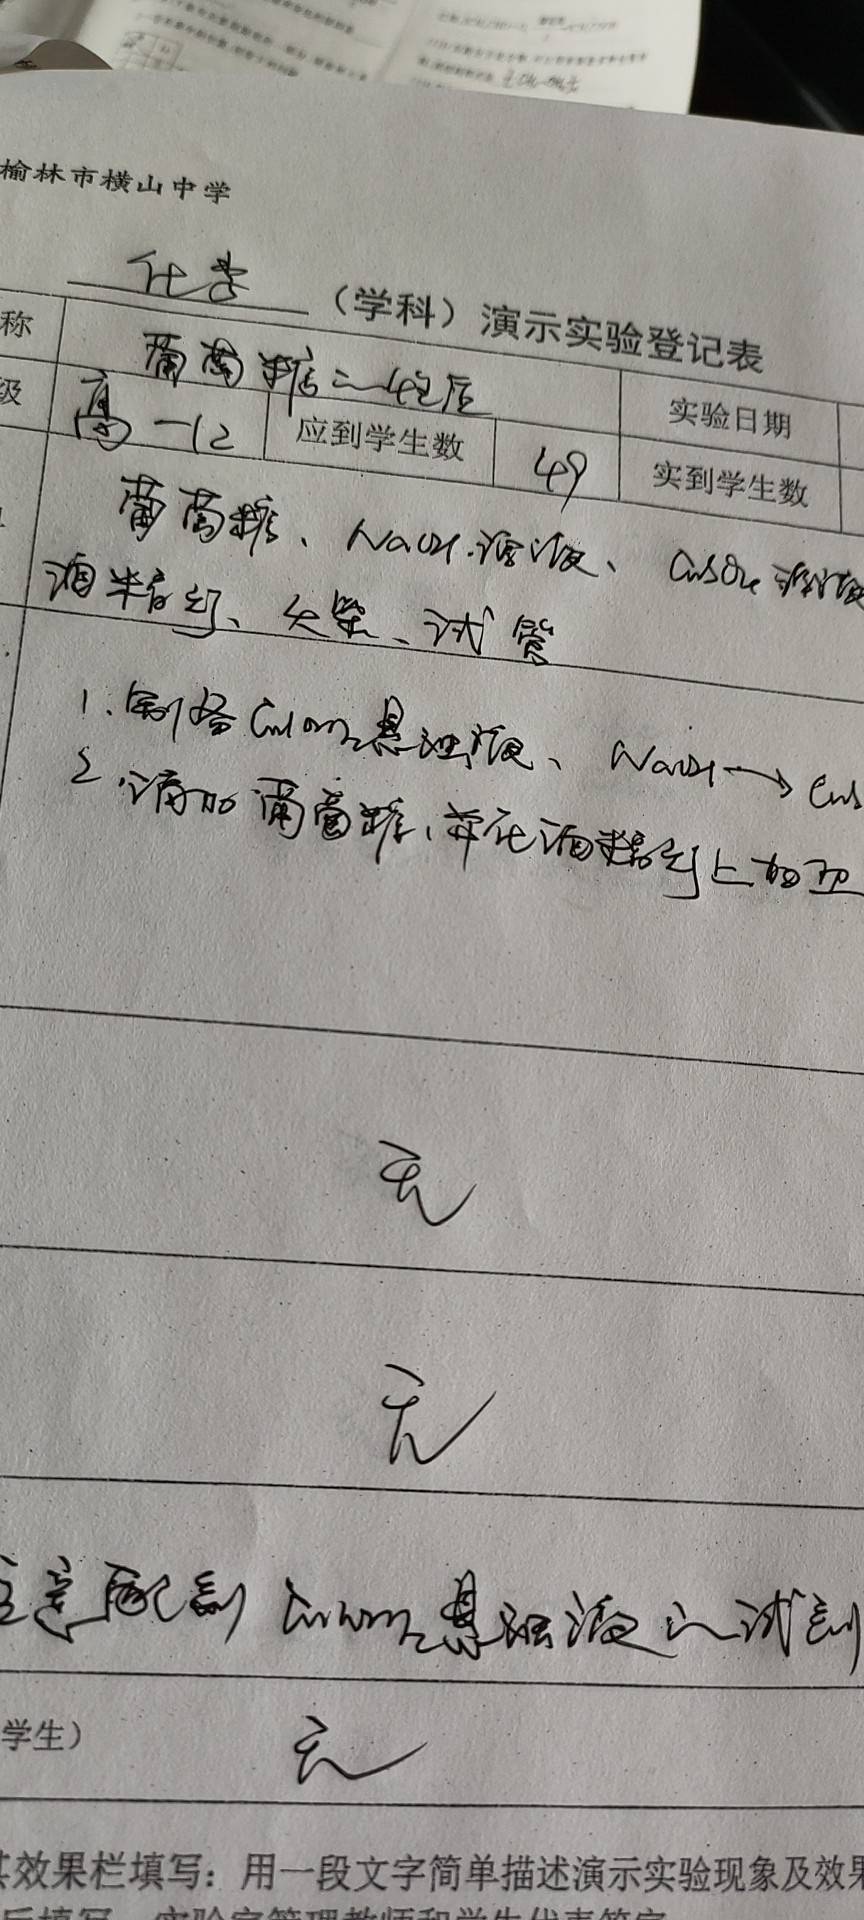 榆林市横山中学
化学（学科）演示实验登记表
称 葡萄糖之 实验日期
级 高一12 应到学生数 49 实到学生数
葡萄糖、NaOH溶液、CuSO4溶液
酒精灯、火柴、试管
1.制备Cu(OH)2悬浊液、NaOH→CuS
2.滴加葡萄糖，并在酒精灯上加
无
无
注意配制Cu(OH)2悬浊液之试剂
学生） 无
其效果栏填写：用一段文字简单描述演示实验现象及效果
后填写，实验室管理教师和学生代表签字